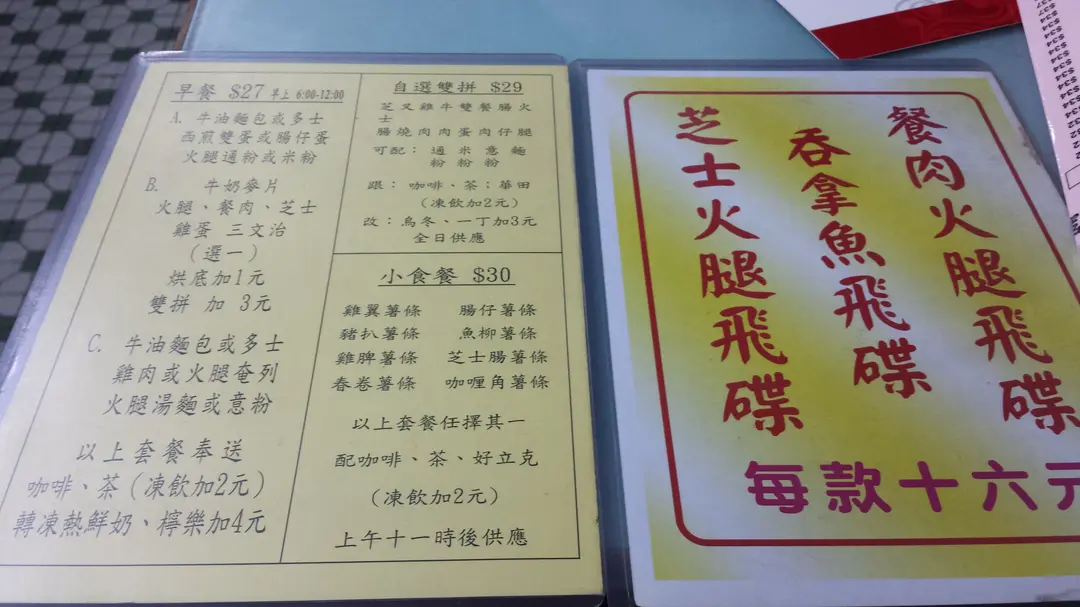 早餐 $27 早上 6:00-12:00
A. 牛油麵包或多士
西煎雙蛋或腸仔蛋
火腿通粉或米粉
B. 牛奶麥片
火腿、餐肉、芝士
雞蛋 三文治
(選一)
烘底加1元
雙拼 加 3元
C. 牛油麵包或多士
雞肉或火腿奄列
火腿湯麵或意粉
以上套餐奉送
咖啡、茶(凍飲加2元)
轉凍熱鮮奶、檸樂加4元
自選雙拼 $29
芝叉雞牛雙餐腸火
士
腸燒肉肉蛋肉仔腿
可配： 通 米 意 麵
粉 粉 粉
跟： 咖啡、茶；華田
(凍飲加2元)
改：烏冬、一丁加3元
全日供應
小食餐 $30
雞翼薯條 腸仔薯條
豬扒薯條 魚柳薯條
雞脾薯條 芝士腸薯條
春卷薯條 咖喱角薯條
以上套餐任擇其一
配咖啡、茶、好立克
(凍飲加2元)
上午十一時後供應
餐肉火腿飛碟
吞拿魚飛碟
芝士火腿飛碟
每款十六元
$37
$34
$34
$34
$34
$34